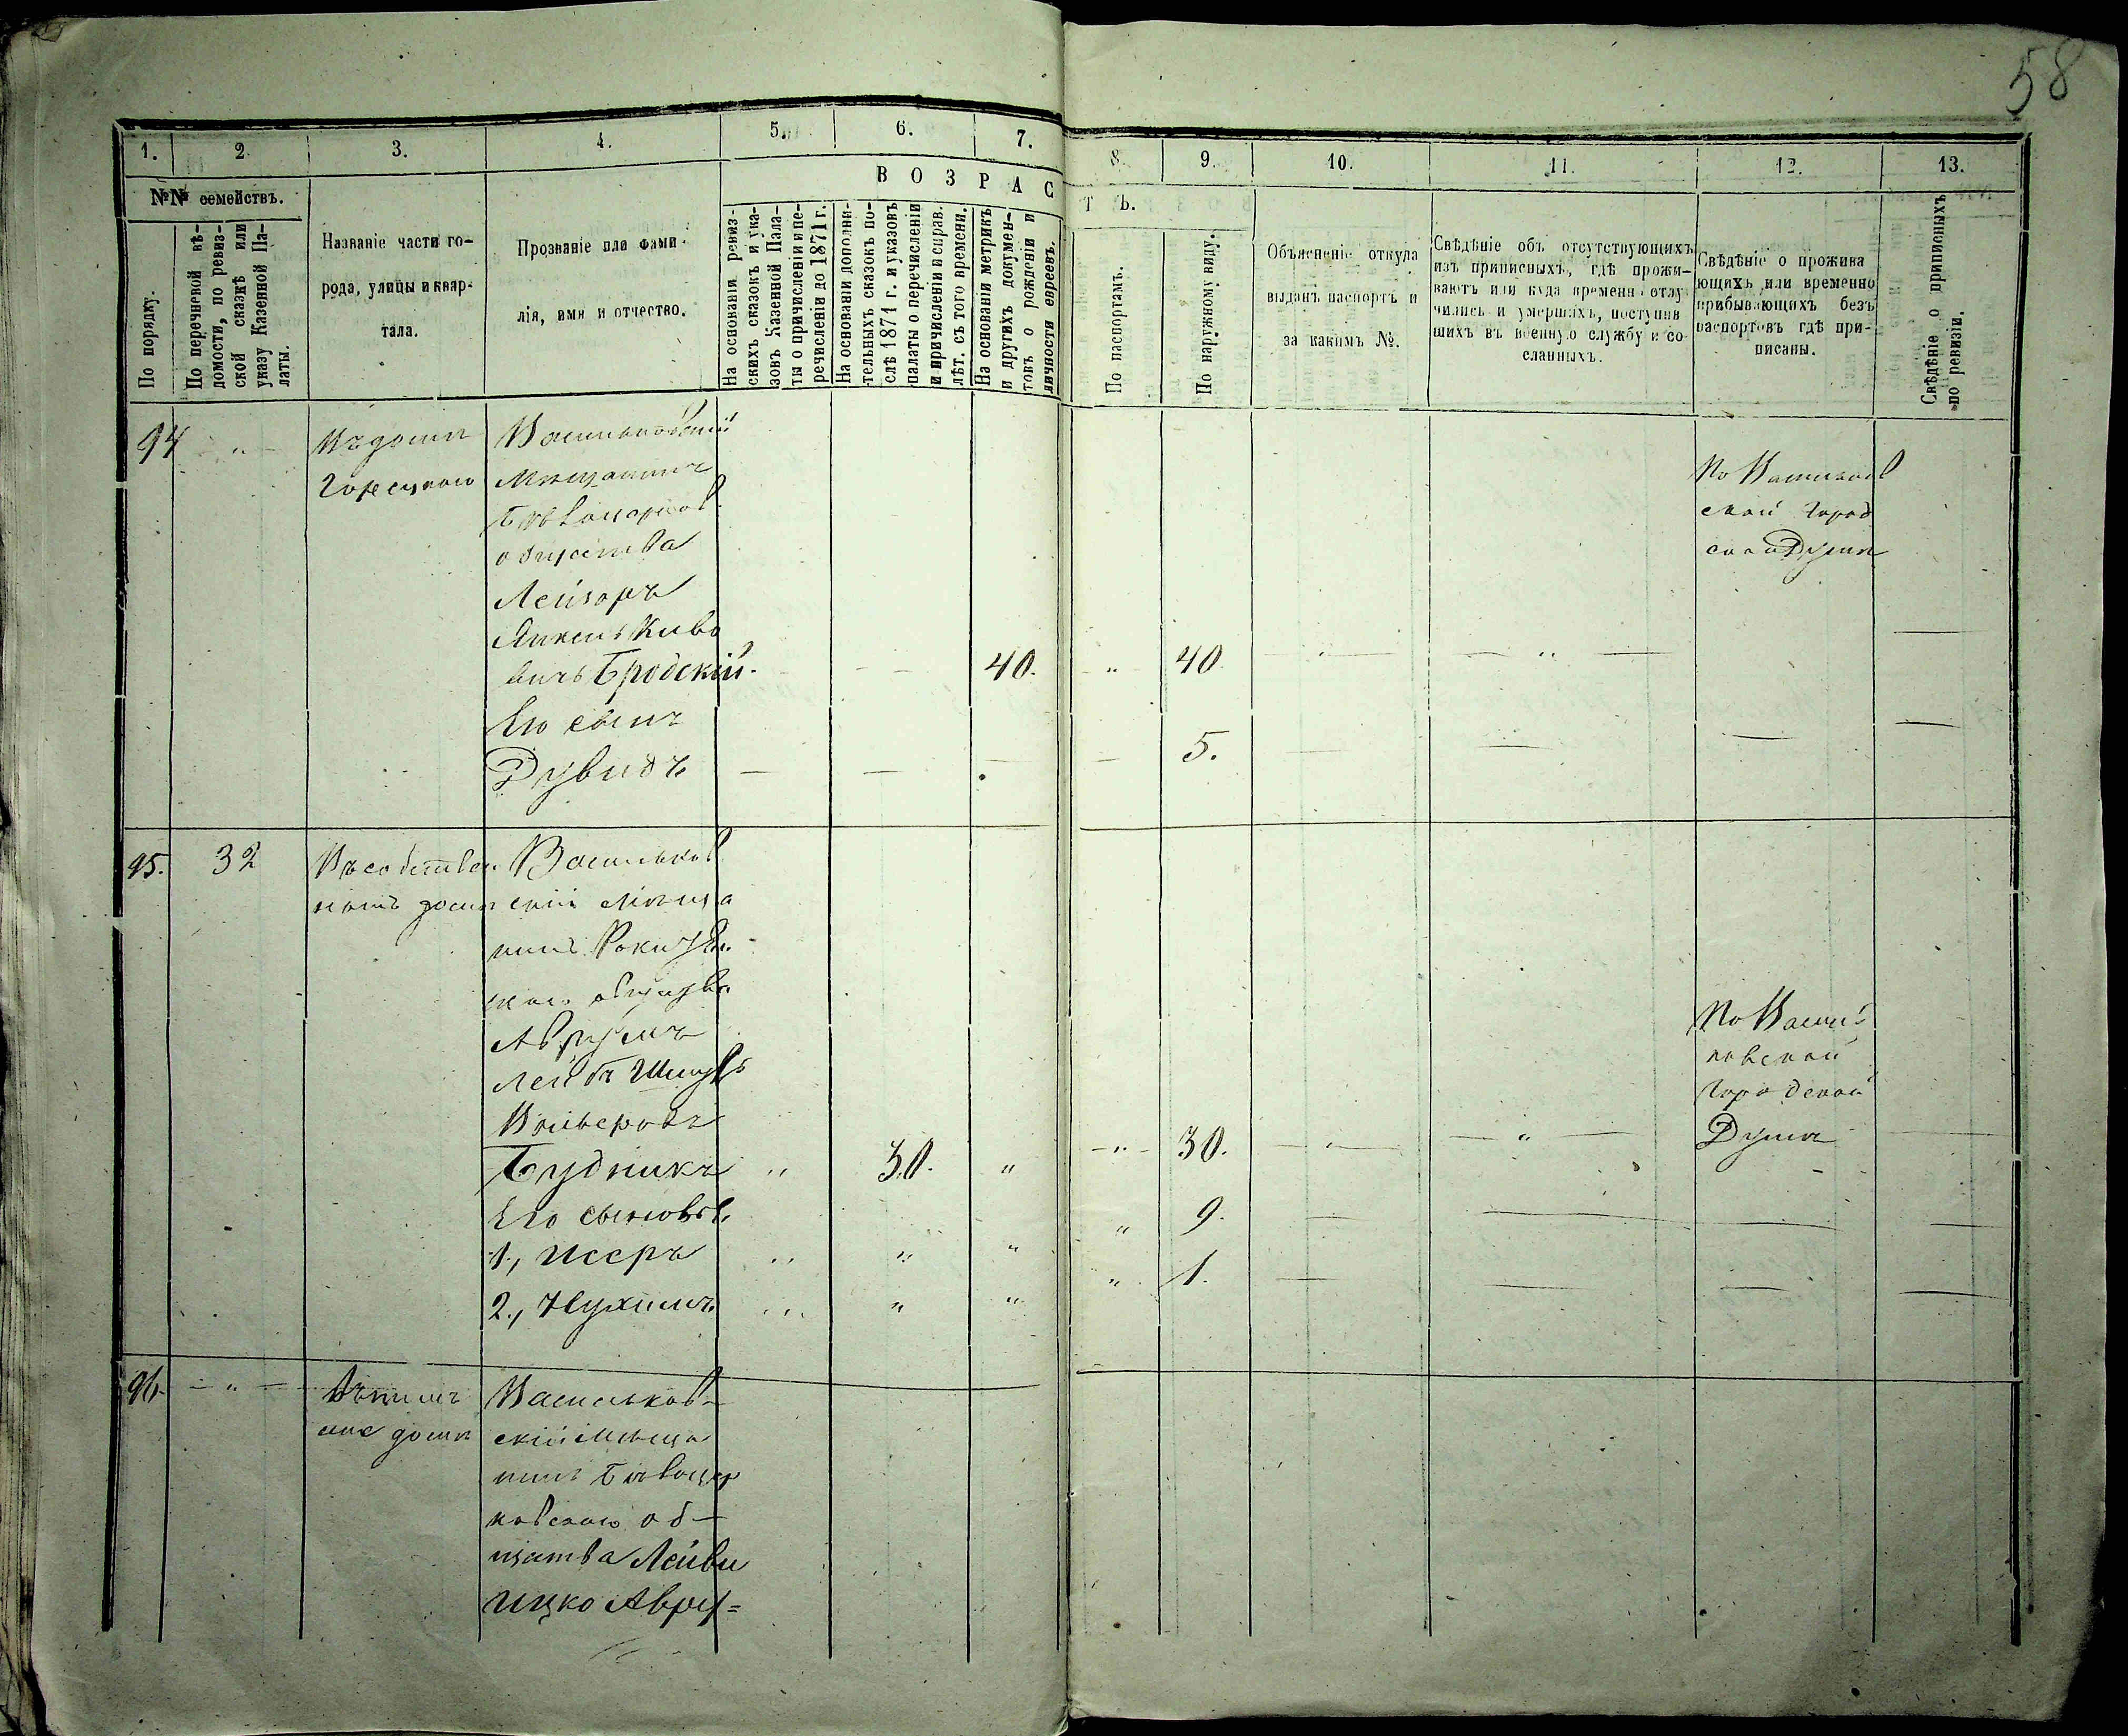 58
1. 2 3. 4. 5. 6. 7. 8. 9. 10. 11. 12. 13.
№№ семействъ.
По порядку.
По перечневой вѣ-
домости, по ревиз-
ской сказкѣ или
указу Казенной Па-
латы.
Названіе части го-
рода, улицы и квар-
тала.
Прозваніе или фами-
лія, имя и отчество.
ВОЗРАСТЪ.
На основаніи ревиз-
скихъ сказокъ и ука-
зовъ Казенной Пала-
ты о причисленіи и пе-
речисленіи до 1871 г.
На основаніи дополни-
тельныхъ сказокъ по-
слѣ 1871 г. и указовъ
палаты о перечисленіи
и причисленіи и справ.
лѣт. съ того времени.
На основаніи метрикъ
и другихъ докумен-
товъ о рожденіи и
личности евреевъ.
По паспортамъ.
По наружному виду.
Объясненіе откуда
выданъ паспортъ и
за какимъ №.
Свѣдѣніе объ отсутствующихъ
изъ приписныхъ, гдѣ прожи-
ваютъ или куда временно отлу
чились и умершихъ, поступив
шихъ въ военную службу и со
сланныхъ.
Свѣдѣніе о прожива
ющихъ или временно
прибывающихъ безъ
паспортовъ гдѣ при-
писаны.
Свѣдѣніе о приписныхъ
по ревизіи.
94 " Въ домѣ Васильковскій
Горецкаго Мѣщанинъ
Бѣлоцерков
общества
Лейзоръ
Янкель Киво
вичъ Бродскій. 40. " 40
По Васильков
ской Город
ской Думѣ
Его сынъ
Дувидъ 5.
95. 32 Въ собствен Васильков
номъ домѣ скій Мѣща
нинъ
скаго общества
Аврумъ
Лейбъ
Будникъ " 30. " " 30.
По Василь
ковской
Городской
Думѣ
Его сыновья
1., Исеръ " " " " 9.
2., Нухимъ " " " " 1.
96. " Васильков-
домѣ скій Мѣща
нинъ Бѣлоцер
ковскаго об-
щества Лейви
Ицко Авру=